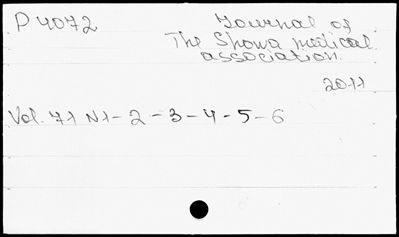 P 4072
Journal of
The Showa medical
association
2011
Vol. 71 N1 - 2 - 3 - 4 - 5 - 6